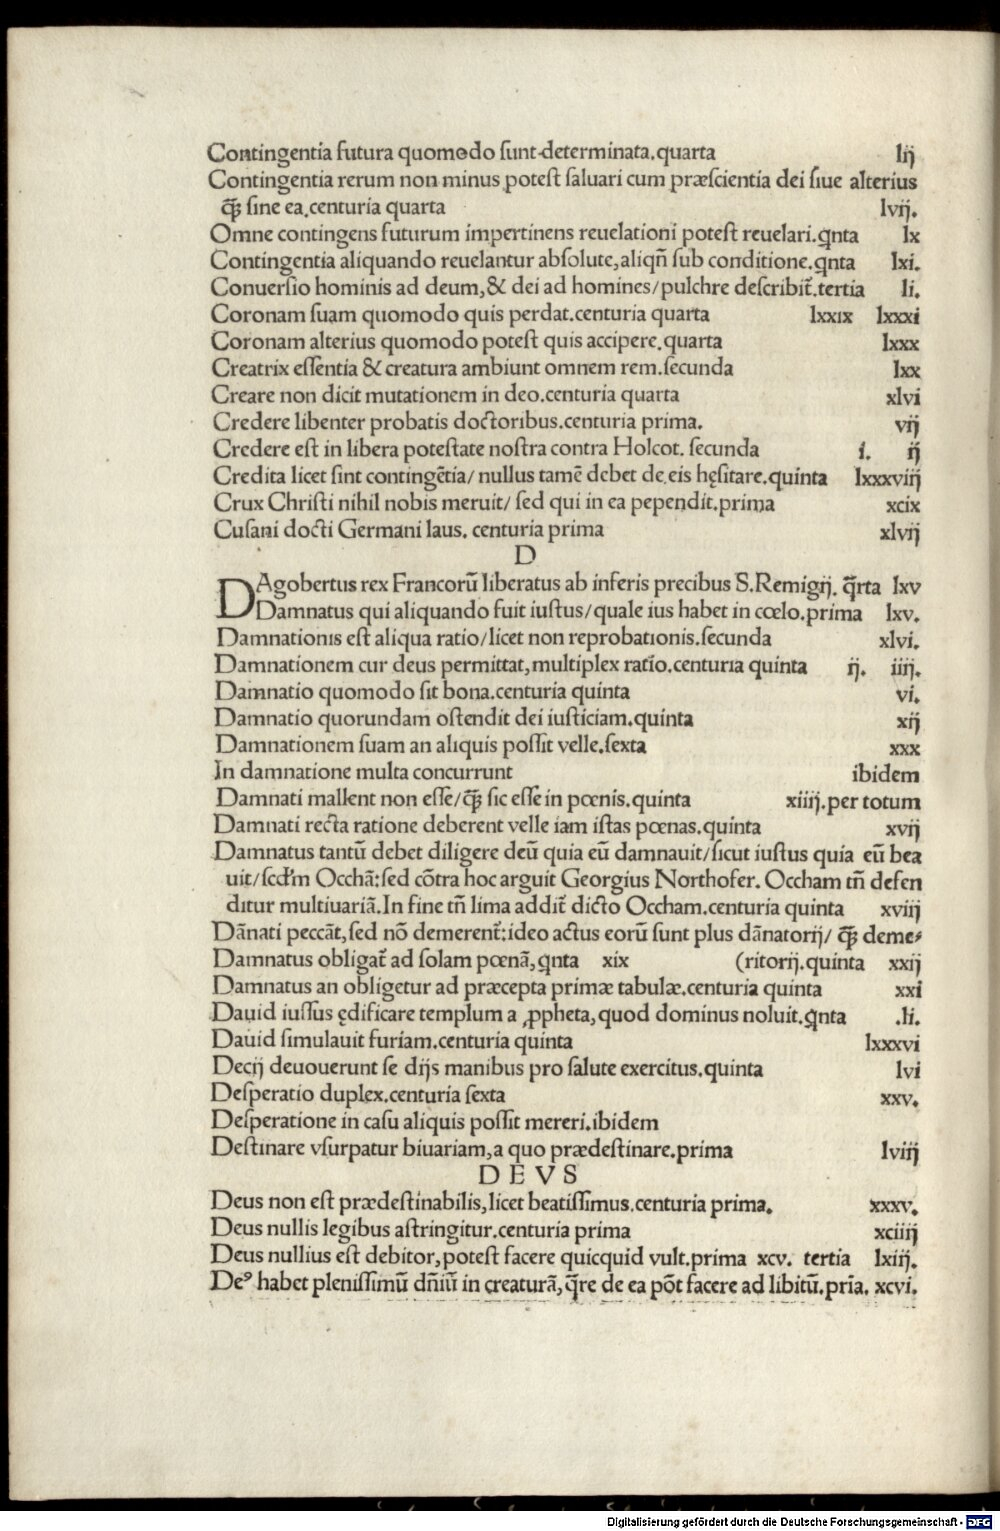 Contingentia futura quomodo ſunt determinata.quarta lij
Contingentia rerum non minus poteſt ſaluari cum præſcientia dei ſiue alterius
ꝙ̃ ſine ea.centuria quarta lvij.
Omne contingens futurum impertinens reuelationi poteſt reuelari.qnta lx
Contingentia aliquando reuelantur abſolute,aliqñ ſub conditione.qnta lxi.
Conuerſio hominis ad deum,& dei ad homines/pulchre deſcribit̃.tertia li.
Coronam ſuam quomodo quis perdat.centuria quarta lxxix lxxxi
Coronam alterius quomodo poteſt quis accipere.quarta lxxx
Creatrix eſſentia & creatura ambiunt omnem rem.ſecunda lxx
Creare non dicit mutationem in deo.centuria quarta xlvi
Credere libenter probatis doctoribus.centuria prima. vij
Credere eſt in libera poteſtate noſtra contra Holcot. ſecunda i. ij
Credita licet ſint contingẽtia/ nullus tamẽ debet de eis hęſitare.quinta lxxxviij
Crux Chriſti nihil nobis meruit/ ſed qui in ea pependit.prima xcix
Cuſani docti Germani laus. centuria prima xlvij
D
DAgobertus rex Francorũ liberatus ab inferis precibus S.Remigij. q̃rta lxv
Damnatus qui aliquando fuit iuſtus/quale ius habet in cœlo.prima lxv.
Damnationis eſt aliqua ratio/licet non reprobationis.ſecunda xlvi.
Damnationem cur deus permittat,multiplex ratio.centuria quinta ij. iiij.
Damnatio quomodo ſit bona.centuria quinta vi.
Damnatio quorundam oſtendit dei iuſticiam.quinta xij
Damnationem ſuam an aliquis poſſit velle.ſexta xxx
In damnatione multa concurrunt ibidem
Damnati mallent non eſſe/ꝙ̃ ſic eſſe in pœnis.quinta xiiij.per totum
Damnati recta ratione deberent velle iam iſtas pœnas.quinta xvij
Damnatus tantũ debet diligere deũ quia eũ damnauit/ſicut iuſtus quia eũ bea
uit/ſcd'm Occhã:ſed cõtra hoc arguit Georgius Northofer. Occham tñ defen
ditur multiuariã.In fine tñ lima addit̃ dicto Occham.centuria quinta xviij
Dãnati peccãt,ſed nõ demerent̃:ideo actus eorũ ſunt plus dãnatorij/ ꝙ̃ deme⸗
Damnatus obligat̃ ad ſolam pœnã,qnta xix (ritorij.quinta xxij
Damnatus an obligetur ad præcepta primæ tabulæ.centuria quinta xxi
Dauid iuſſus ędificare templum a ꝓpheta,quod dominus noluit.qnta .li.
Dauid ſimulauit furiam.centuria quinta lxxxvi
Decij deuouerunt ſe dijs manibus pro ſalute exercitus.quinta lvi
Deſperatio duplex.centuria ſexta xxv.
Deſperatione in caſu aliquis poſſit mereri.ibidem
Deſtinare vſurpatur biuariam,a quo prædeſtinare.prima lviij
DEVS
Deus non eſt prædeſtinabilis,licet beatiſſimus.centuria prima. xxxv.
Deus nullis legibus aſtringitur.centuria prima xciiij
Deus nullius eſt debitor,poteſt facere quicquid vult.prima xcv. tertia lxiij.
Deꝰ habet pleniſſimũ dñiũ in creaturã,q̃re de ea põt facere ad libitũ.pria. xcvi.
Digitalisierung gefördert durch die Deutsche Forschungsgemeinschaft - DFG